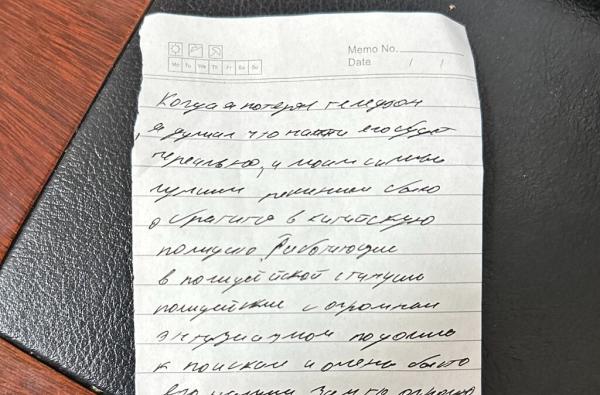 Memo No.
Date / /
Mo Tu We Th Fr Sa Su
Когда я потерял телефон
я думал что найти его будет
нереально, и моим самым
лучшим решением было
обратится в китайскую
полицию. Работающие
в полицейской станции
полицейские с огромным
энтузиазмом подошли
к поискам и очень быстро
его нашли